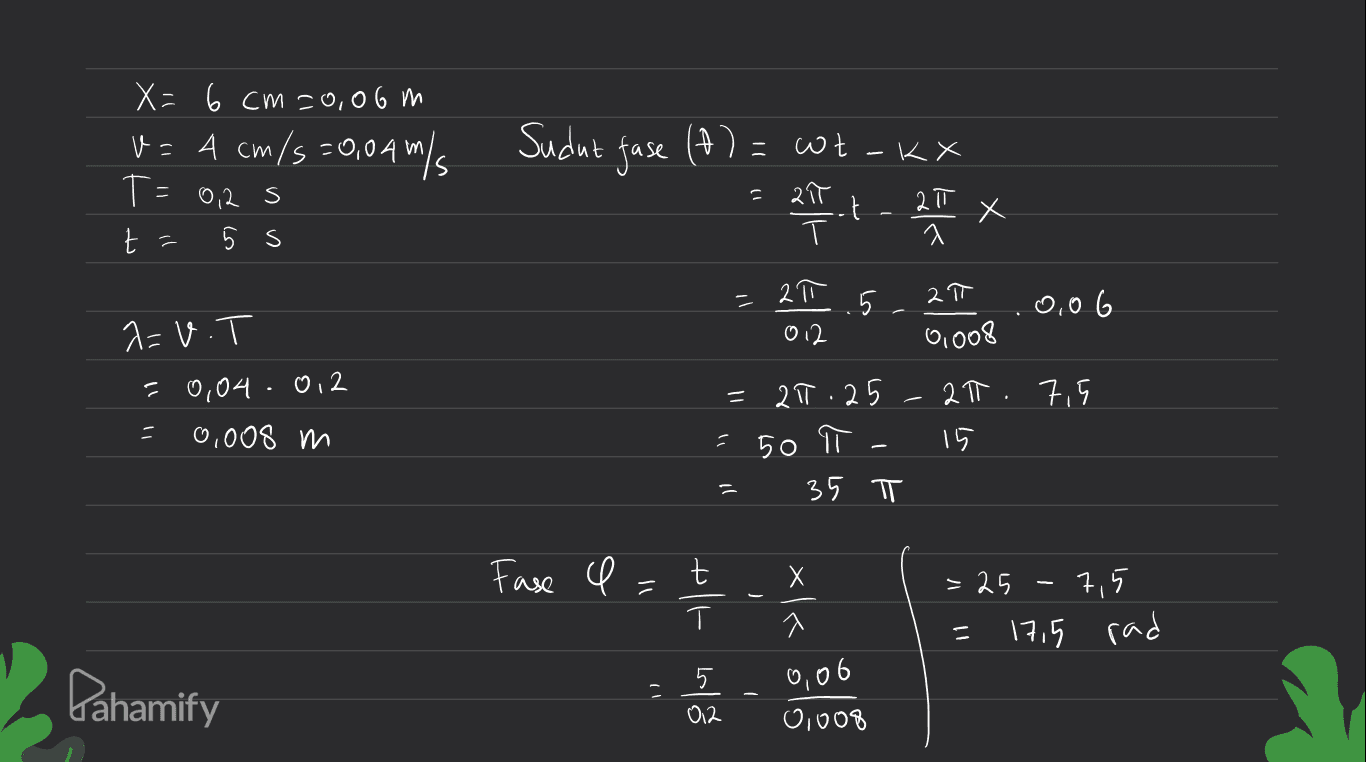 X = 6 cm = 0,06 m
v = 4 cm/s = 0,04 m/s
T = 0,2 s
t = 5 s
λ = v . T
= 0,04 . 0,2
= 0,008 m
Sudut fase (θ) = ωt - kx
= 2π/T . t - 2π/λ x
= 2π/0,2 . 5 - 2π/0,008 . 0,06
= 2π . 25 - 2π . 7,5
= 50 π - 15
= 35 π
Fase φ = t/T - x/λ
= 5/0,2 - 0,06/0,008
= 25 - 7,5
= 17,5 rad
Pahamify